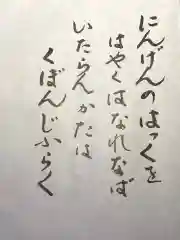 にんげんのはっくを
はやくはなれなば
いたらんかたは
くぼんじふらく